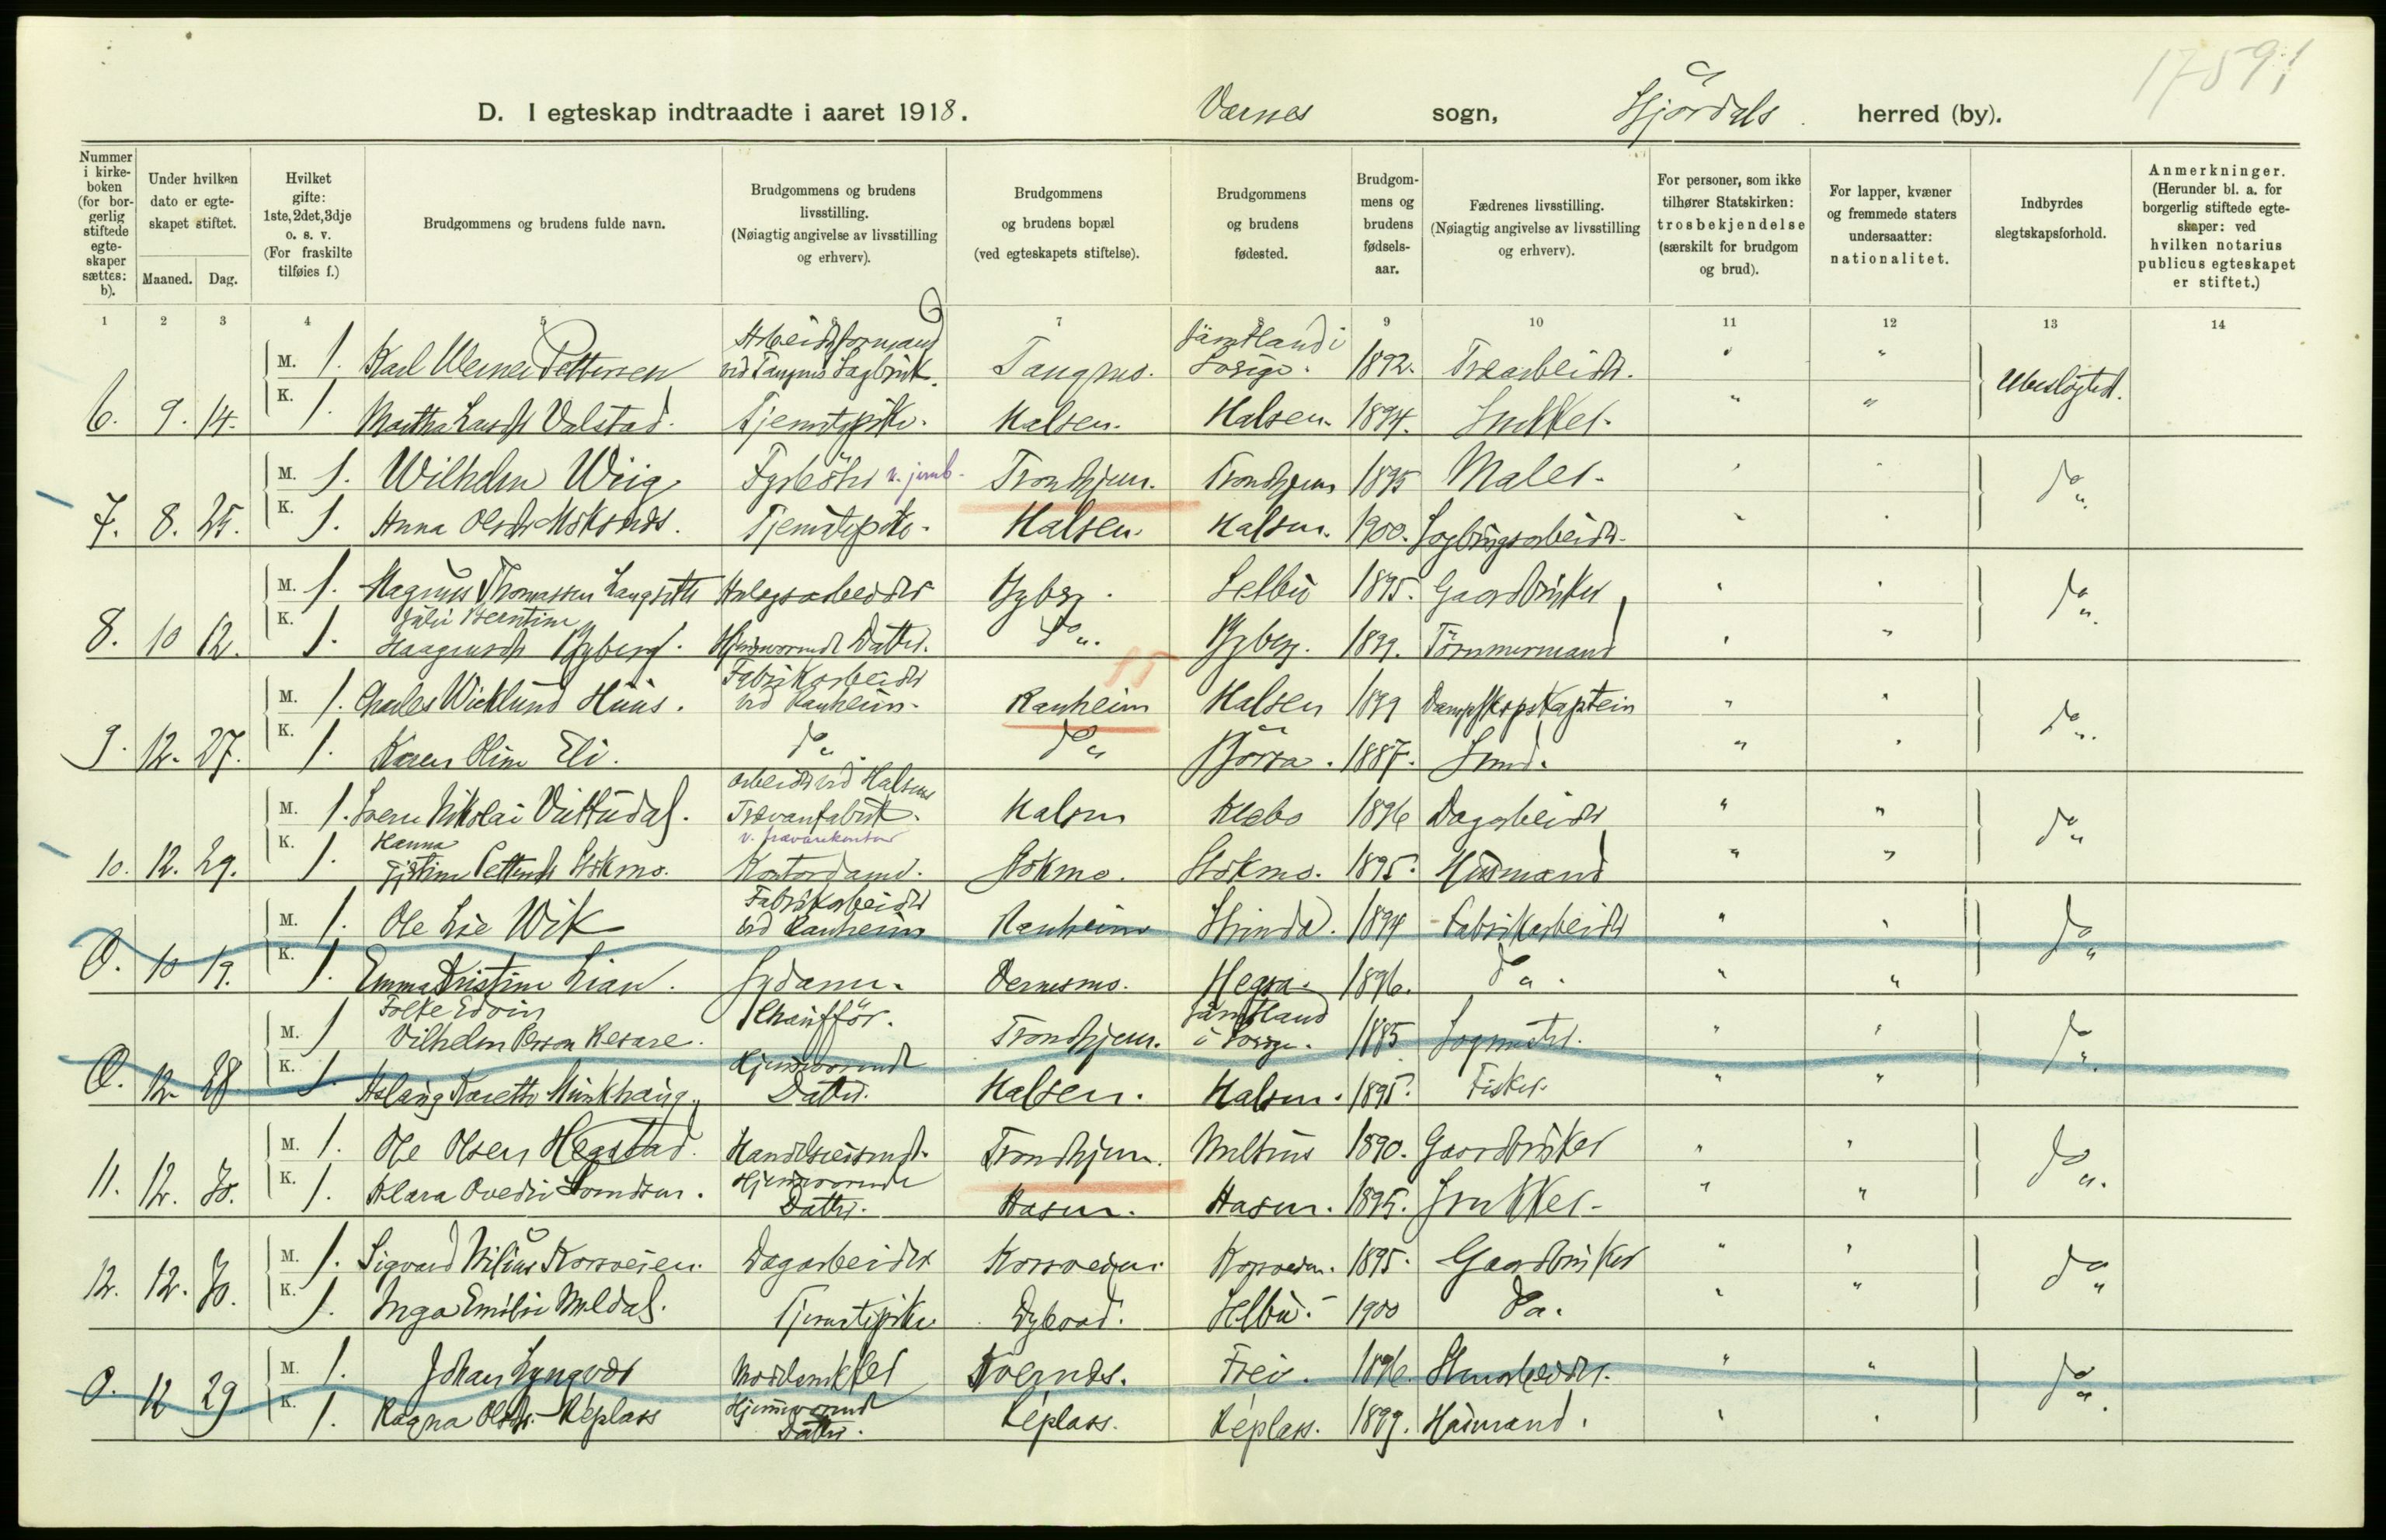 17591
D. I egteskap indtraadte i aaret 1918. Værnes sogn, Stjørdals herred (by).
Nummer i kirkeboken (for borgerlig stiftede egteskaper sættes: b).
Under hvilken dato er egteskapet stiftet.
Maaned. Dag.
Hvilket gifte: 1ste, 2det, 3dje o. s. v. (For fraskilte tilføies f.)
Brudgommens og brudens fulde navn.
Brudgommens og brudens livsstilling. (Nøiagtig angivelse av livsstilling og erhverv).
Brudgommens og brudens bopæl (ved egteskapets stiftelse).
Brudgommens og brudens fødested.
Brudgommens og brudens fødselsaar.
Fædrenes livsstilling. (Nøiagtig angivelse av livsstilling og erhverv).
For personer, som ikke tilhører Statskirken: trosbekjendelse (særskilt for brudgom og brud).
For lapper, kvæner og fremmede staters undersaatter: nationalitet.
Indbyrdes slegtskapsforhold.
Anmerkninger. (Herunder bl. a. for borgerlig stiftede egteskaper: ved hvilken notarius publicus egteskapet er stiftet.)
1 2 3 4 5 7 9 10 11 12 13 14
M. 1. Karl Werner Pettersen Arbeidsformand ved Tangmo Sagbruk. Tangmo. Jämtland i Sverige. 1892. Træarbeider. " " Ubeslægtet.
6. 9. 14. K. 1. Martha Larsdtr Valstad. Tjenestepike. Halsen. Halsen. 1894. Snekker. " "
M. 1. Wilhelm Wiig Fyrbøter v. jernb. Trondhjem. Trondhjem 1895 Maler. " " Do "
7. 8. 25. K. 1. Anna Olsdtr Moksnes. Tjenestepike. Halsen. Halsen. 1900. Sagbrugsarbeider. " "
M. 1. Magnus Thomassen Langseth Anlegsarbeider Hyberg. Selbu 1895. Gaardbruker " " Do "
8. 10 12. K. 1. Julie Berntine Haagensdtr Hyberg. Hjemmeværende Datter. Do ". Hyberg. 1899. Tømmermand " "
15
M. 1. Charles Wicklund Huus. Fabrikarbeider ved Ranheim. Ranheim Halsen 1899 Dampskipskaptein " " Do "
9. 12. 27. K. 1. Karen Oline Eli. Do " Do " 1887. Smed. " "
M. 1. Sverre Nikolai Vuttudal. Arbeider ved Halsens Trævarefabrik. Halsen Klebo 1896 Dagarbeider " " Do "
v. trævarekontor
10. 12. 29. K. 1. Hanna Pettersdtr Stokmo. Kontordame. Stokmo. Stokmo. 1895. Husmand " "
M. 1. Ole Lie Wik Fabrikarbeider ved Ranheim Ranheim Strinda. 1894 Fabrikarbeider " " Do "
0. 10 19. K. 1. Emma Kristine Lian. Sydame. Vernesmo. Hegra. 1896. Do ". " "
M. 1 Folke Edvin Vilhelm Person Resare. Chauffør. Trondhjem. Jämtland i Sverige. 1885 Sagmester. " " Do "
0. 12. 28 K. 1. Aslaug Karette Munkhaug. Hjemmeværende Datter. Halsen. Halsen. 1895. Fisker. " "
M. 1. Ole Olsen Hegstad. Handelsreisende. Trondhjem. Meldus 1890. Gaardbruker " " Do ".
11. 12. 30. K. 1. Klara Ovedie Svendsen. Hjemmeværende Datter. Hasen. Hasen. 1895. Snekker. " "
M. 1. Sigvard Nilius Korsveien. Dagarbeider Korsveien. Korsveien. 1895. Gaardbruker " " Do "
12. 12. 30. K. 1. Inga Emilie Meldal. Tjenestepike Dybvad. Selbu. 1900 Do ". " "
M. 1. Johan Lyngved Modelsnekker Værnes. Frei. 1896. Stenarbeider. " " Do ".
0. 12 29 K. 1. Ragna Olsdtr. Réplass Hjemmeværende Datter. Réplass. Réplass. 1899. Husmand. " "